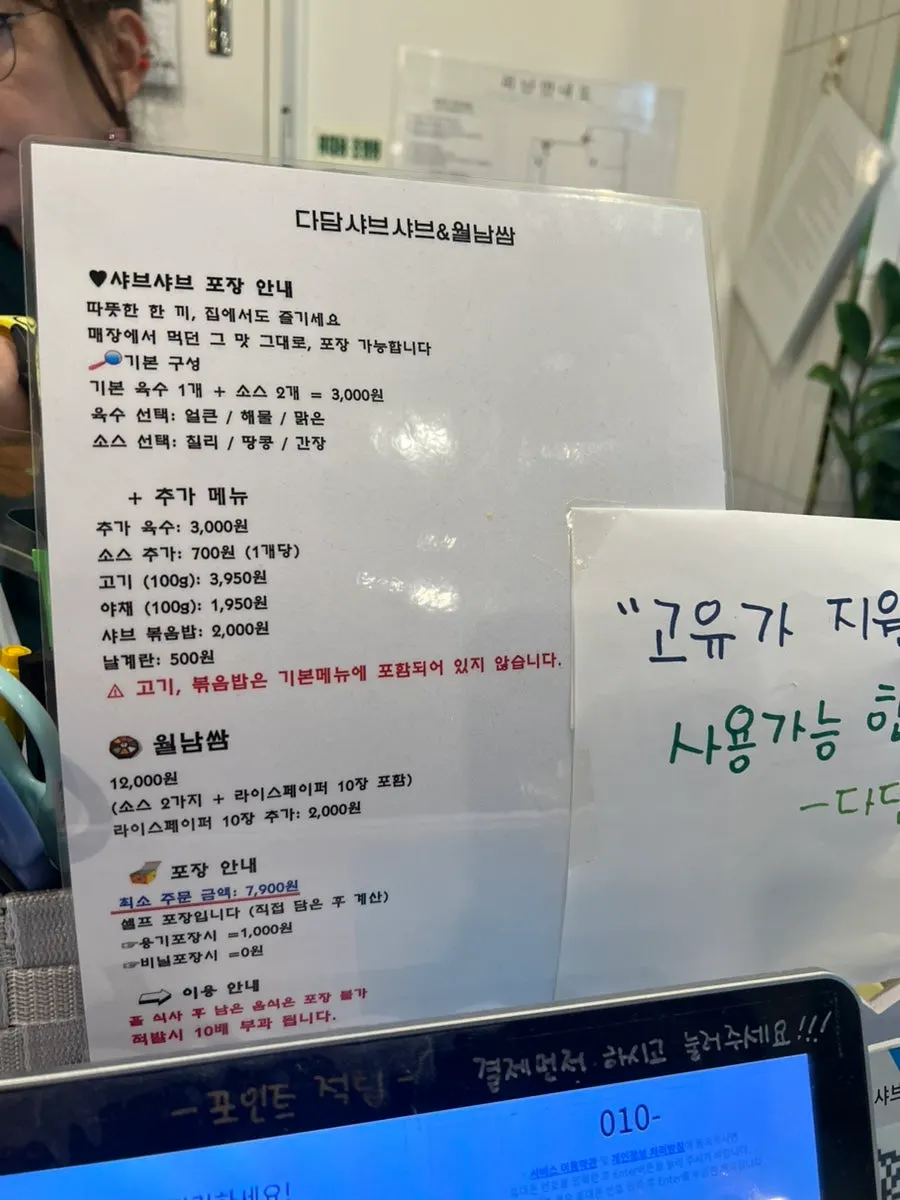 다담샤브샤브&월남쌈
♥샤브샤브 포장 안내
따뜻한 한 끼, 집에서도 즐기세요
매장에서 먹던 그 맛 그대로, 포장 가능합니다
기본 구성
기본 육수 1개 + 소스 2개 = 3,000원
육수 선택: 얼큰 / 해물 / 맑은
소스 선택: 칠리 / 땅콩 / 간장
+ 추가 메뉴
추가 육수: 3,000원
소스 추가: 700원 (1개당)
고기 (100g): 3,950원
야채 (100g): 1,950원
샤브 볶음밥: 2,000원
날계란: 500원
⚠ 고기, 볶음밥은 기본메뉴에 포함되어 있지 않습니다.
월남쌈
12,000원
(소스 2가지 + 라이스페이퍼 10장 포함)
라이스페이퍼 10장 추가: 2,000원
포장 안내
최소 주문 금액: 7,900원
셀프 포장입니다 (직접 담은 후 계산)
☞용기포장시 =1,000원
☞비닐포장시 =0원
이용 안내
홀 식사 후 남은 음식은 포장 불가
적발시 10배 부과 됩니다.
"고유가 지원
사용가능 합
-다담
-포인트 적립-
결제먼저 하시고 눌러주세요!!!
010-
서비스 이용약관 및 개인정보 처리방침
샤브